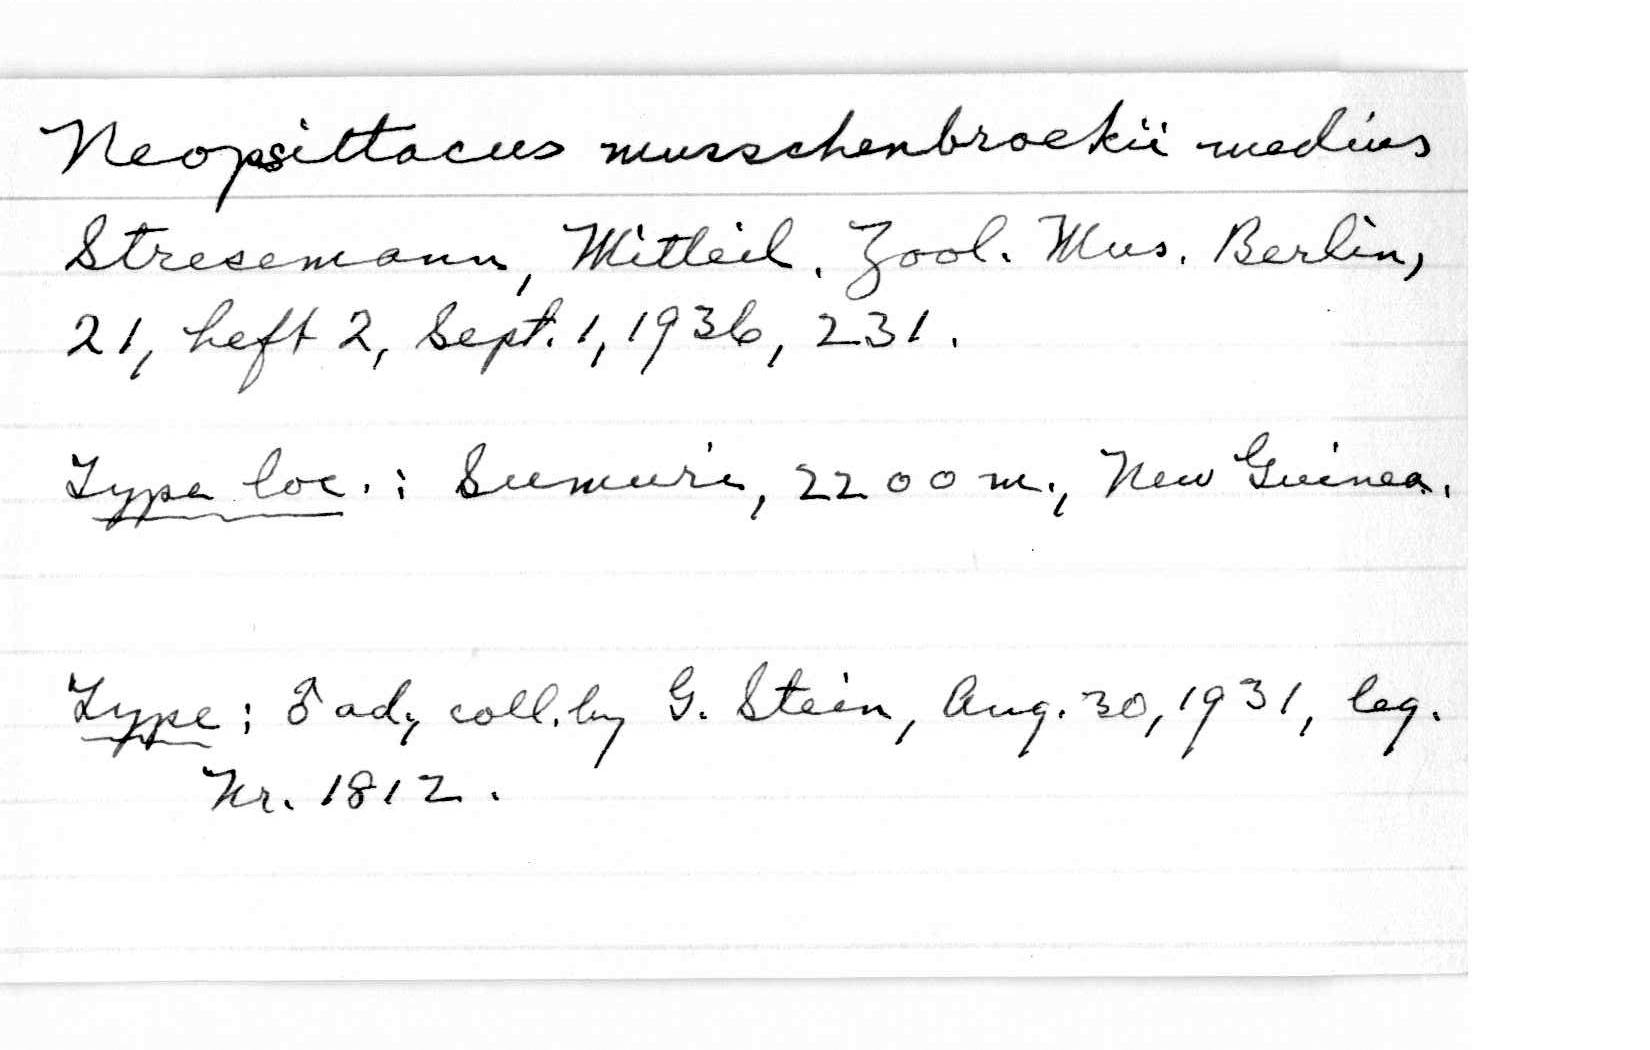 Neopsittacus musschenbroekii medius
Stresemann, Mitteil. Zool. Mus. Berlin,
21, heft 2, Sept. 1, 1936, 231.
Type loc.: Sumuri, 2200 m., New Guinea.
Type: ♂ ad, coll. by G. Stein, Aug. 30, 1931, leg.
Nr. 1812.